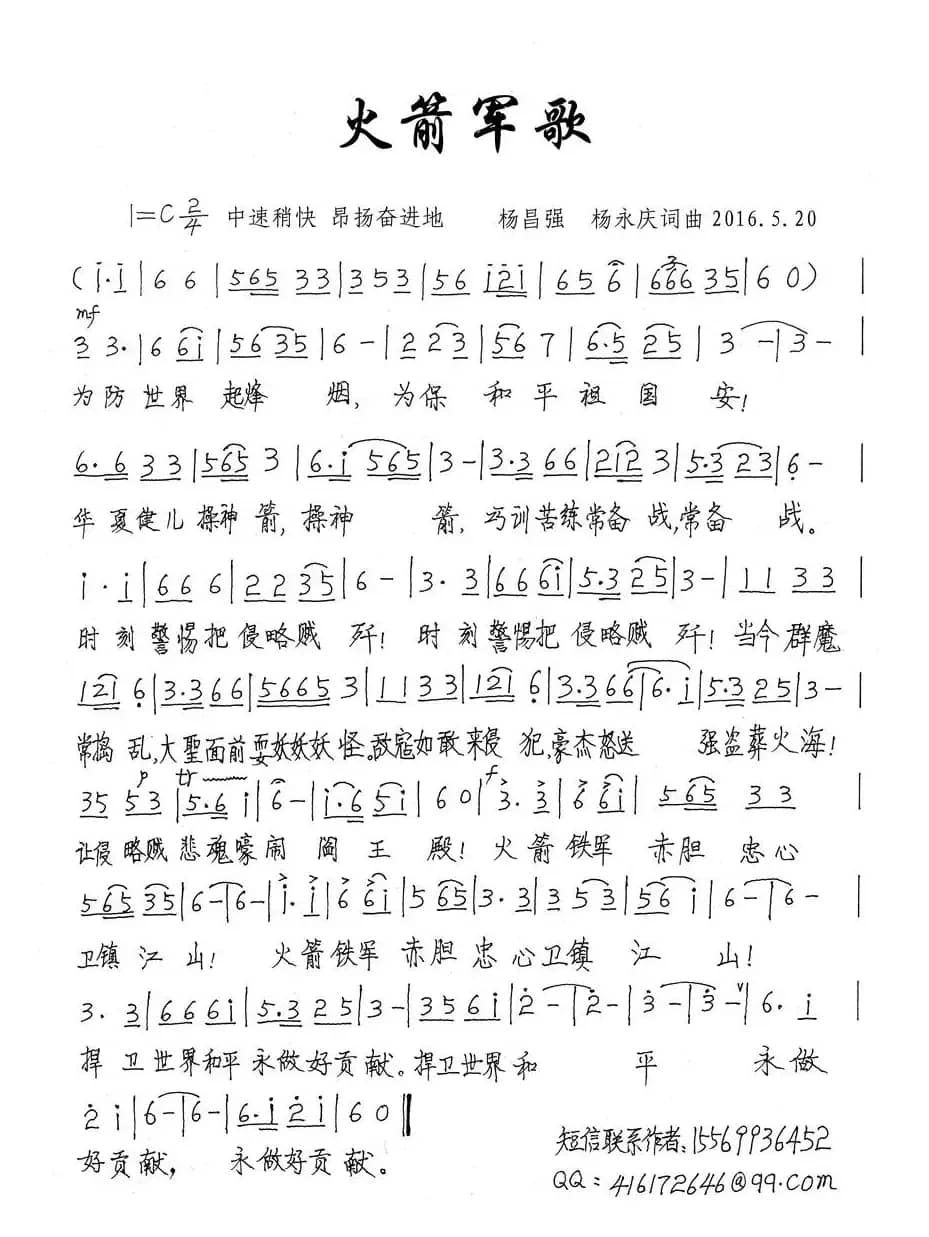 火箭军歌
1=C 2/4 中速稍快 昂扬奋进地 杨昌强 杨永庆词曲 2016.5.20
(i·i|6 6|565 33|353|56 i2i|65 6|666 35|60)|
mf
3 3·|6 6i|56 35|6-|2 23|56 7|6·5 25|3-|3-|
为防世界起烽 烟,为保 和平祖国 安!
6·6 33|565 3|6·i 565|3-|3·3 66|212 3|5·3 23|6-|
华夏健儿操神箭,操神 箭,巧训苦练常备战,常备 战。
i·i|66 6|22 35|6-|3·3|66 6i|5·3 25|3-|11 33|
时刻警惕把侵略贼 歼!时刻警惕把侵略贼 歼!当今群魔
121 6|3·3 66|5665 3|11 33|121 6|3·3 66|6·i|5·3 25|3-|
常捣乱,大圣面前耍妖妖妖怪。敌寇如敢来侵犯,豪杰怒送 强盗葬火海!
p tr f
35 53|5·6 i|6-|i·6 5i|60|3·3|6 6i|565 33|
让侵略贼悲魂嚎闹阎王殿!火箭铁军赤胆忠心
565 35|6-|6-|i·i|6 6i|5 65|3·3|35 3|56 i|6-|6-|
卫镇江山! 火箭铁军赤胆忠心卫镇 江 山!
3·3|66 6i|5·3 25|3-|35 6i|2-|2-|3-|3-|6·i|
捍卫世界和平永做好贡献。捍卫世界和 平 永做
2 i|6-|6-|6·i 2i|60||
好贡献, 永做好贡献。
短信联系作者:15569936452
QQ:416172646@99.com